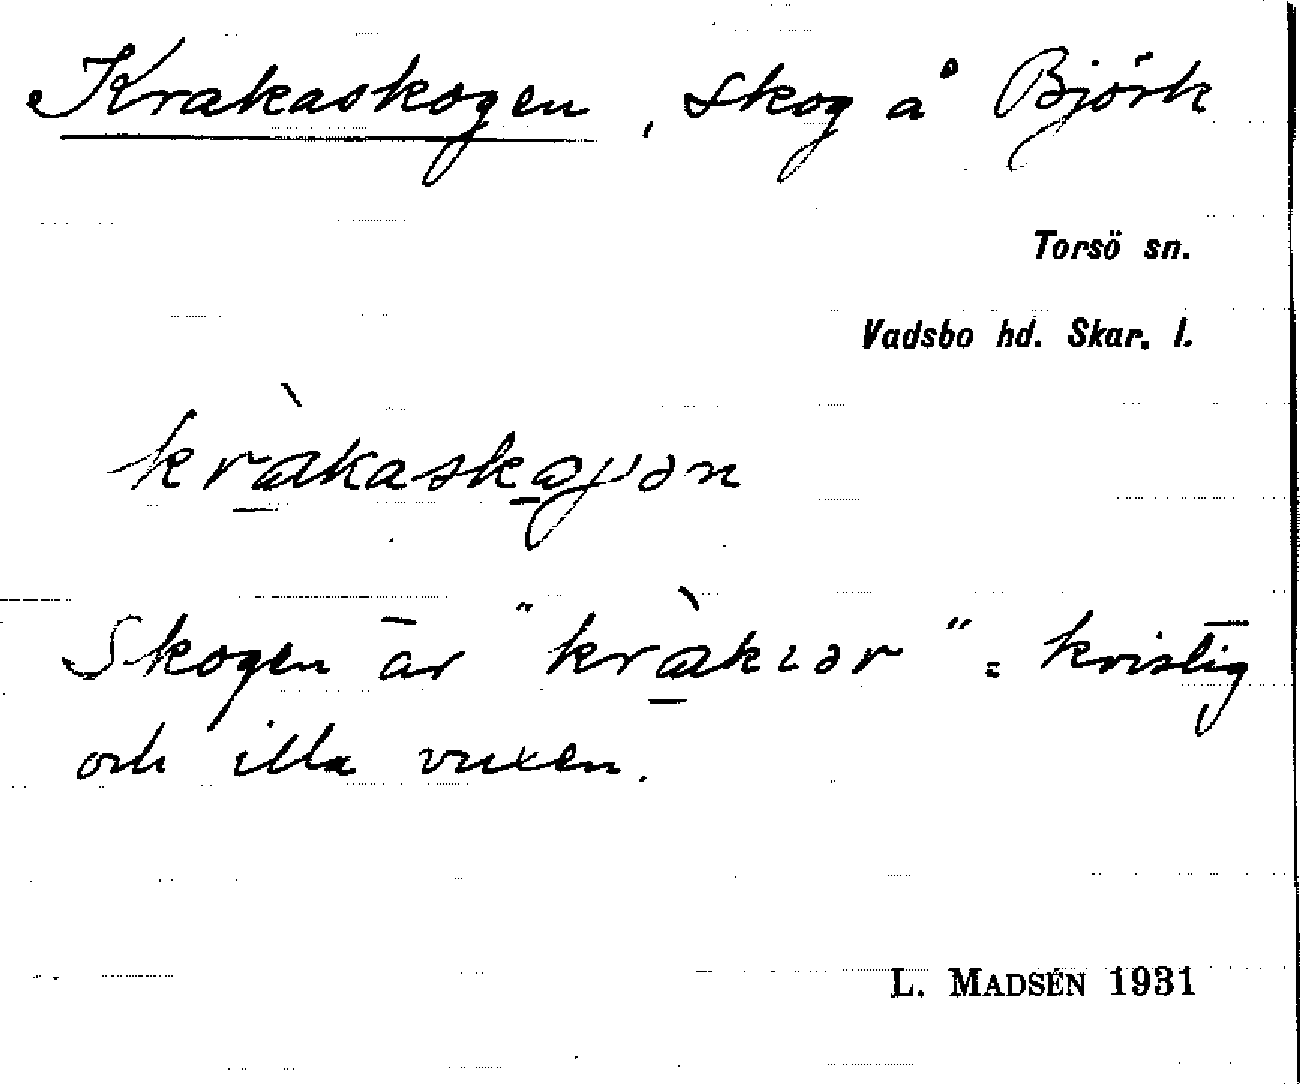 Krakaskogen, skog å Björk
Torsö sn.
Vadsbo hd. Skar. l.
kràkaskoɡən
Skogen är "kràkıər" = kvistig
och illa vuxen.
L. MADSÉN 1931